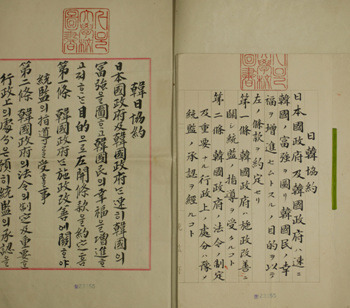 日韓協約
日本國政府及韓國政府ハ速ニ
韓國ノ富强ヲ圖リ韓國民ノ幸
福ヲ增進セントスルノ目的ヲ以テ
左ノ條款ヲ約定セリ
第一條 韓國政府ハ施政改善ニ
關シ統監ノ指導ヲ受クルコト
第二條 韓國政府ノ法令ノ制定
及重要ナル行政上ノ處分ハ豫メ
統監ノ承認ヲ經ルコト
韓日協約
日本國政府及韓國政府는速히韓國의
富强을圖ᄒᆞ고韓國民의幸福을增進코
져ᄒᆞ는目的으로左開條款을約定홈
第一條 韓國政府는施政改善에關ᄒᆞ야
統監의指導를受ᄒᆞᆯ事
第二條 韓國政府의法令의制定及重要ᄒᆞᆫ
行政上의處分은預히統監의承認을